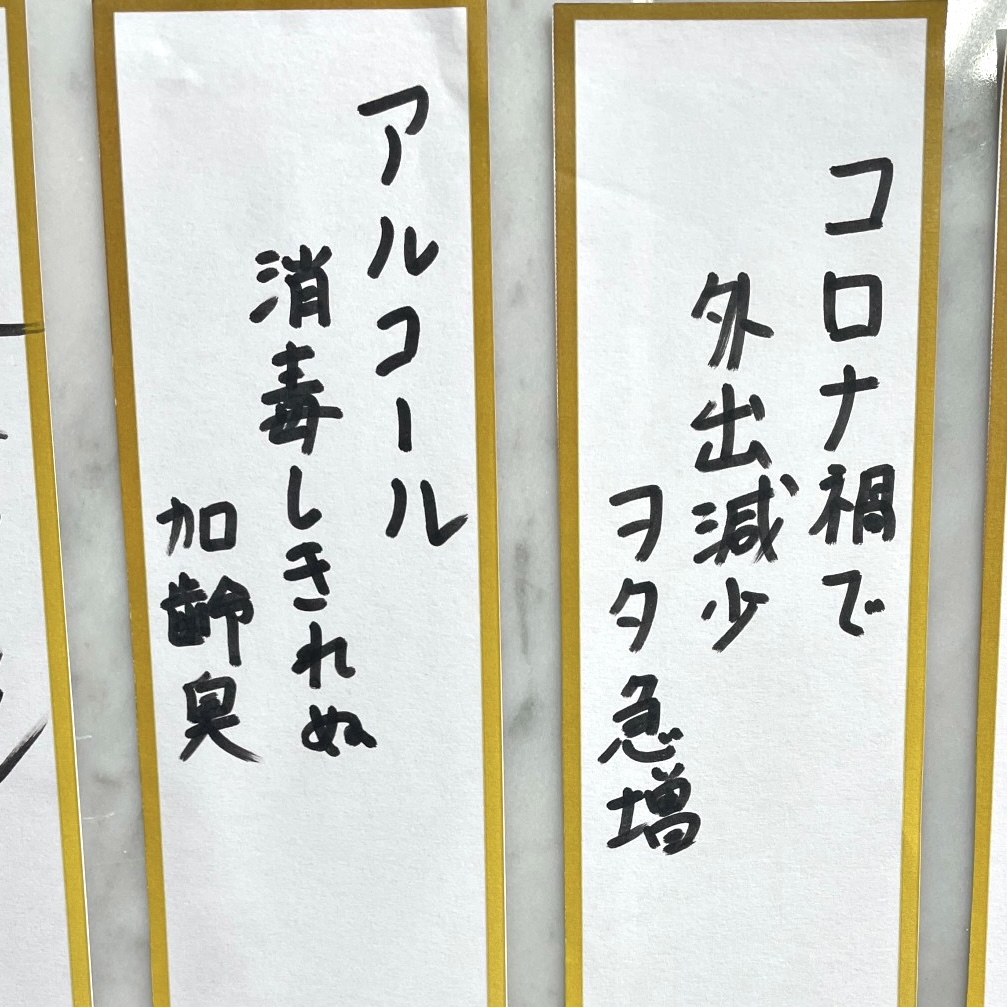 コロナ禍で
外出減少
ヲタ急増
アルコール
消毒しきれぬ
加齢臭